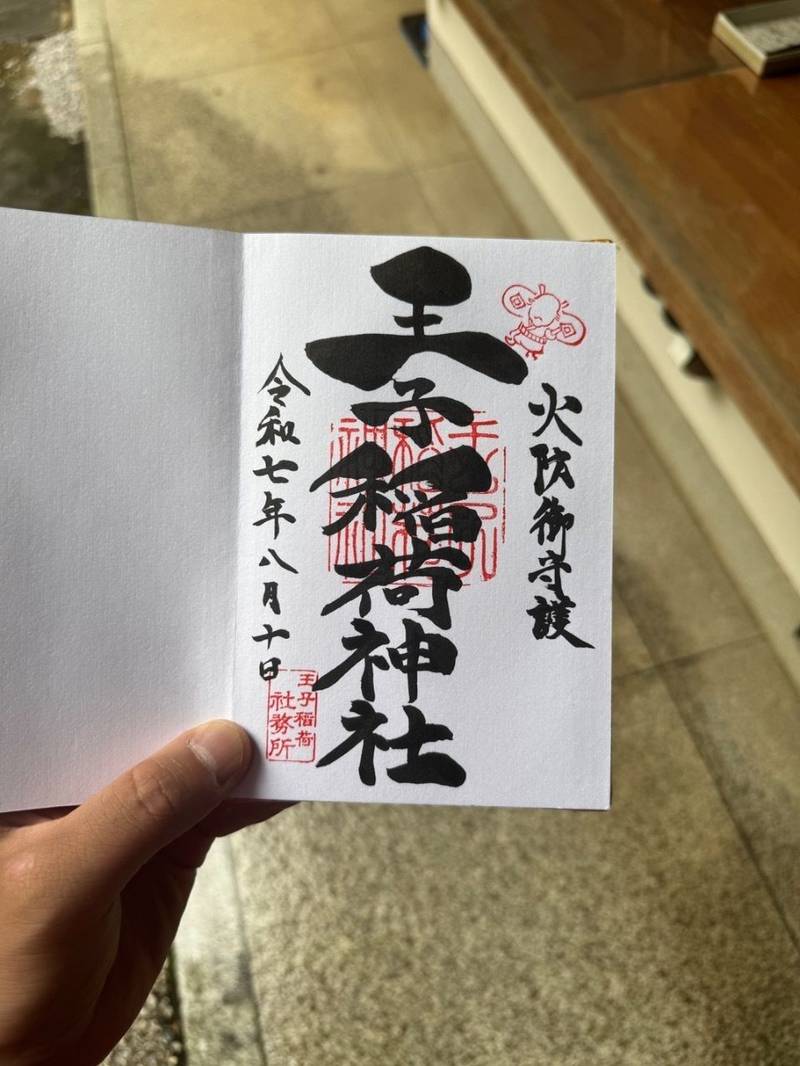 火防御守護
王子稲荷神社
令和七年八月十日
王子稲荷
社務所